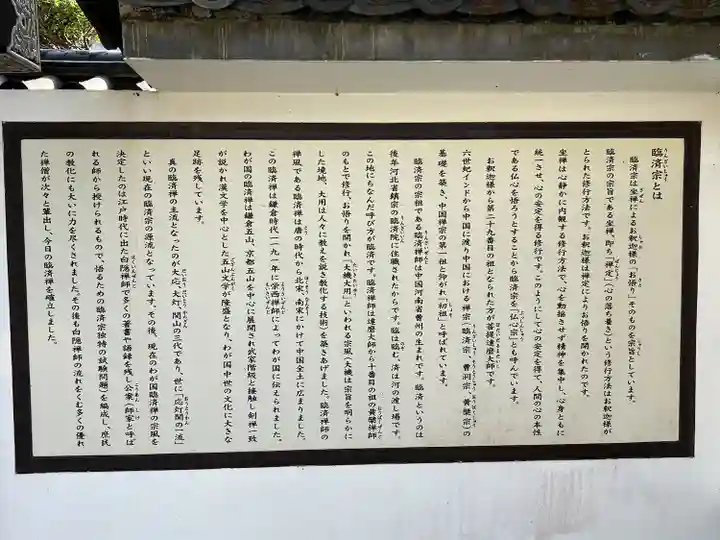 臨済宗とは
臨済宗は坐禅によるお釈迦様の「お悟り」そのものを宗旨としています。
臨済宗の宗旨である坐禅、即ち「禅定」(心の落ち着き)という修行方法はお釈迦様が
とられた修行方法です。お釈迦様は禅定によりお悟りを開かれたのです。
坐禅は心静かに内観する修行方法で、心を動揺させず精神を集中し、心身ともに
統一させ、心の安定を得る修行です。このようにして心の安定を得て、人間の心の本性
である仏心を悟ろうとすることから臨済宗を「仏心宗」とも呼んでいます。
お釈迦様から第二十九番目の祖となられた方が菩提達磨大師です。
六世紀インドから中国に渡り中国における禅宗(臨済宗、曹洞宗、黄檗宗)の
基礎を築き、中国禅宗の第一祖と仰がれ「初祖」と呼ばれています。
臨済宗の宗祖である臨済禅師は中国河南省曹州の生まれです。臨済というのは
後年河北省鎮宗の臨済院に住職されたからです。臨は臨む、済は河の渡し場です。
この地にちなんだ呼び方が臨済です。臨済禅師は達磨大師から十番目の祖の黄檗禅師
のもとで修行、お悟りを開かれ「大機大用」といわれる宗風(大機は宗旨を明らかに
した境地、大用は人々に教えを説き教化する技術)を築きあげました。臨済禅師の
禅風である臨済禅は唐の時代から北宋、南宋にかけて中国全土に広まりました。
この臨済禅は鎌倉時代(一一九一年)に栄西禅師によってわが国に伝えられました。
わが国の臨済禅は鎌倉五山、京都五山を中心に展開され武家階級と接触し剣禅一致
が説かれ漢文学を中心とした五山文学が隆盛となり、わが国中世の文化に大きな
足跡を残しています。
真の臨済禅の主流となったのが大応、大灯、関山の三代であり、世に「応灯関の一流」
といい現在の臨済宗の源流となっています。その後、現在のわが国臨済禅の宗風を
決定したのは江戸時代に出た白隠禅師で多くの著書や語録を残し公案(師家と呼ば
れる師から授けられるもので、悟るための臨済宗独特の試験問題)を編成し、庶民
の教化にも大いに力を尽くされました。その後も白隠禅師の流れをくむ多くの優れ
た禅僧が次々と輩出し、今日の臨済禅を確立しました。